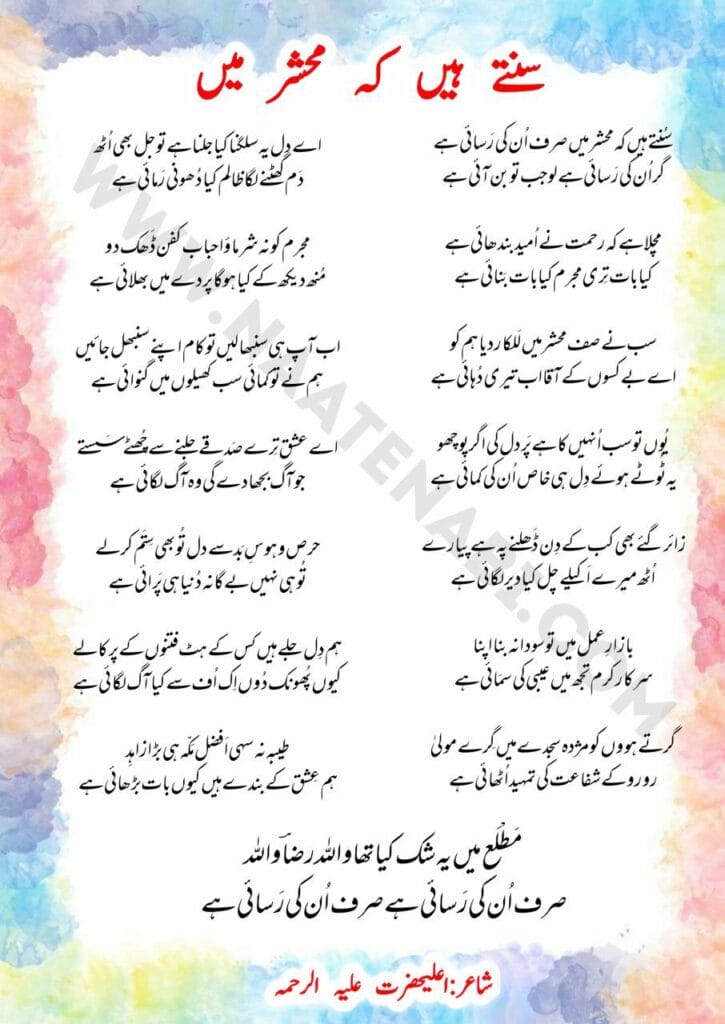 سنتے ہیں کہ محشر میں
سُنتے ہیں کہ محشر میں صرف اُن کی رَسائی ہے
گر اُن کی رَسائی ہے لو جب تو بن آئی ہے
مچلا ہے کہ رحمت نے اُمید بندھائی ہے
کیا بات تِری مجرم کیا بات بَنائی ہے
سب نے صف محشر میں لَلکار دیا ہم کو
اے بے کسوں کے آقا اب تیری دُہائی ہے
یُوں تو سب اُنہیں کا ہے پَر دل کی اگر پوچھو
یہ ٹُوٹے ہوئے دِل ہی خاص اُن کی کمائی ہے
زائر گئے بھی کب کے دِن ڈَھلنے پہ ہے پیارے
اُٹھ میرے اَکیلے چل کیا دیر لگائی ہے
بازارِ عمل میں تو سودا نہ بنا اپنا
سرکار کرم تجھ میں عیبی کی سَمائی ہے
گرتے ہووں کو مژدہ سجدے میں گِرے مولیٰ
رو رو کے شفاعت کی تمہید اُٹھائی ہے
اے دِل یہ سلگنا کیا جلنا ہے تو جل بھی اُٹھ
دَم گُھٹنے لگا ظالم کیا دُھونی رَمائی ہے
مجرم کو نہ شرماؤ احباب کفن ڈَھک دو
مُنھ دیکھ کے کیا ہوگا پردے میں بھلائی ہے
اب آپ ہی سنبھالیں تو کام اپنے سنبھل جائیں
ہم نے تو کمائی سب کھیلوں میں گنوائی ہے
اے عشق تِرے صَدقے جلنے سے چُھٹے سَستے
جو آگ بجھا دے گی وہ آگ لگائی ہے
حرص و ہوسِ بَد سے دل تُو بھی سِتَم کر لے
تُو ہی نہیں بے گانہ دُنیا ہی پَرائی ہے
ہم دِل جلے ہیں کس کے ہٹ فتنوں کے پرکالے
کیوں پُھونک دُوں اِک اُف سے کیا آگ لگائی ہے
طیبہ نہ سہی اَفضل مکّہ ہی بڑا زاہِد
ہم عشق کے بندے ہیں کیوں بات بڑھائی ہے
مَطْلَع میں یہ شک کیا تھا واللہ رضاؔ واللہ
صرف اُن کی رَسائی ہے صرف اُن کی رَسائی ہے
شاعر:اعلیحضرت علیہ الرحمہ
WWW.NAATENABI.COM